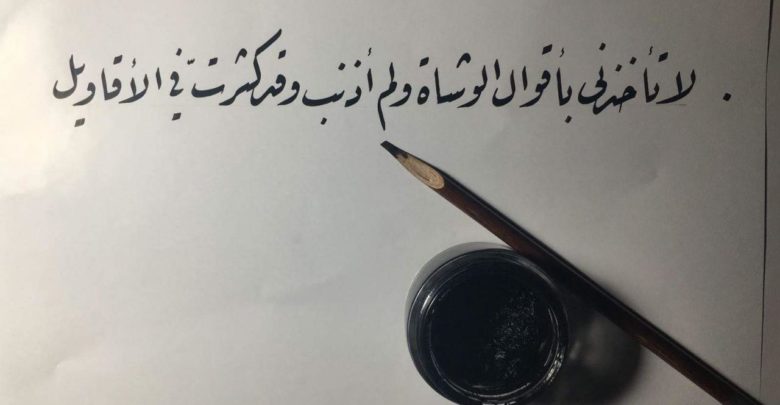 لا تأخذني بأقوال الوشاة ولم أذنب وقد كثرت فيّ الأقاويل